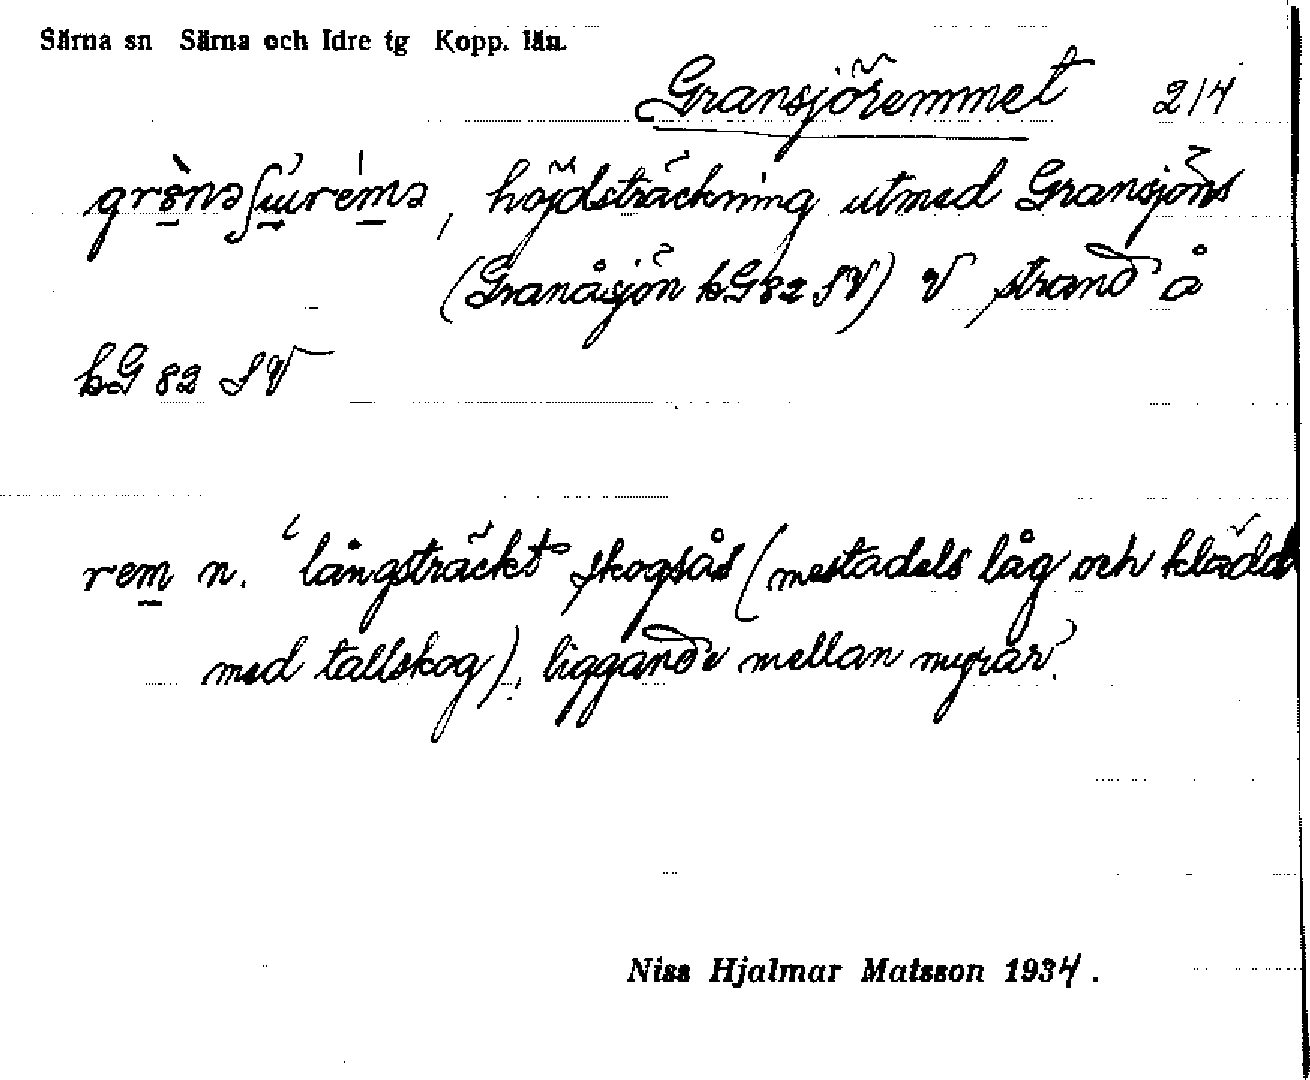 Särna sn Särna och Idre tg Kopp. län.
Gransjöremmet 214
höjdsträckning utmed Gransjöns
(Granåsjön bG 82 SV) V strand å
bG 82 SV
rem n. "långsträckt skogsås (mestadels låg och klädd
med tallskog), liggande mellan myrar".
Niss Hjalmar Matsson 1934.